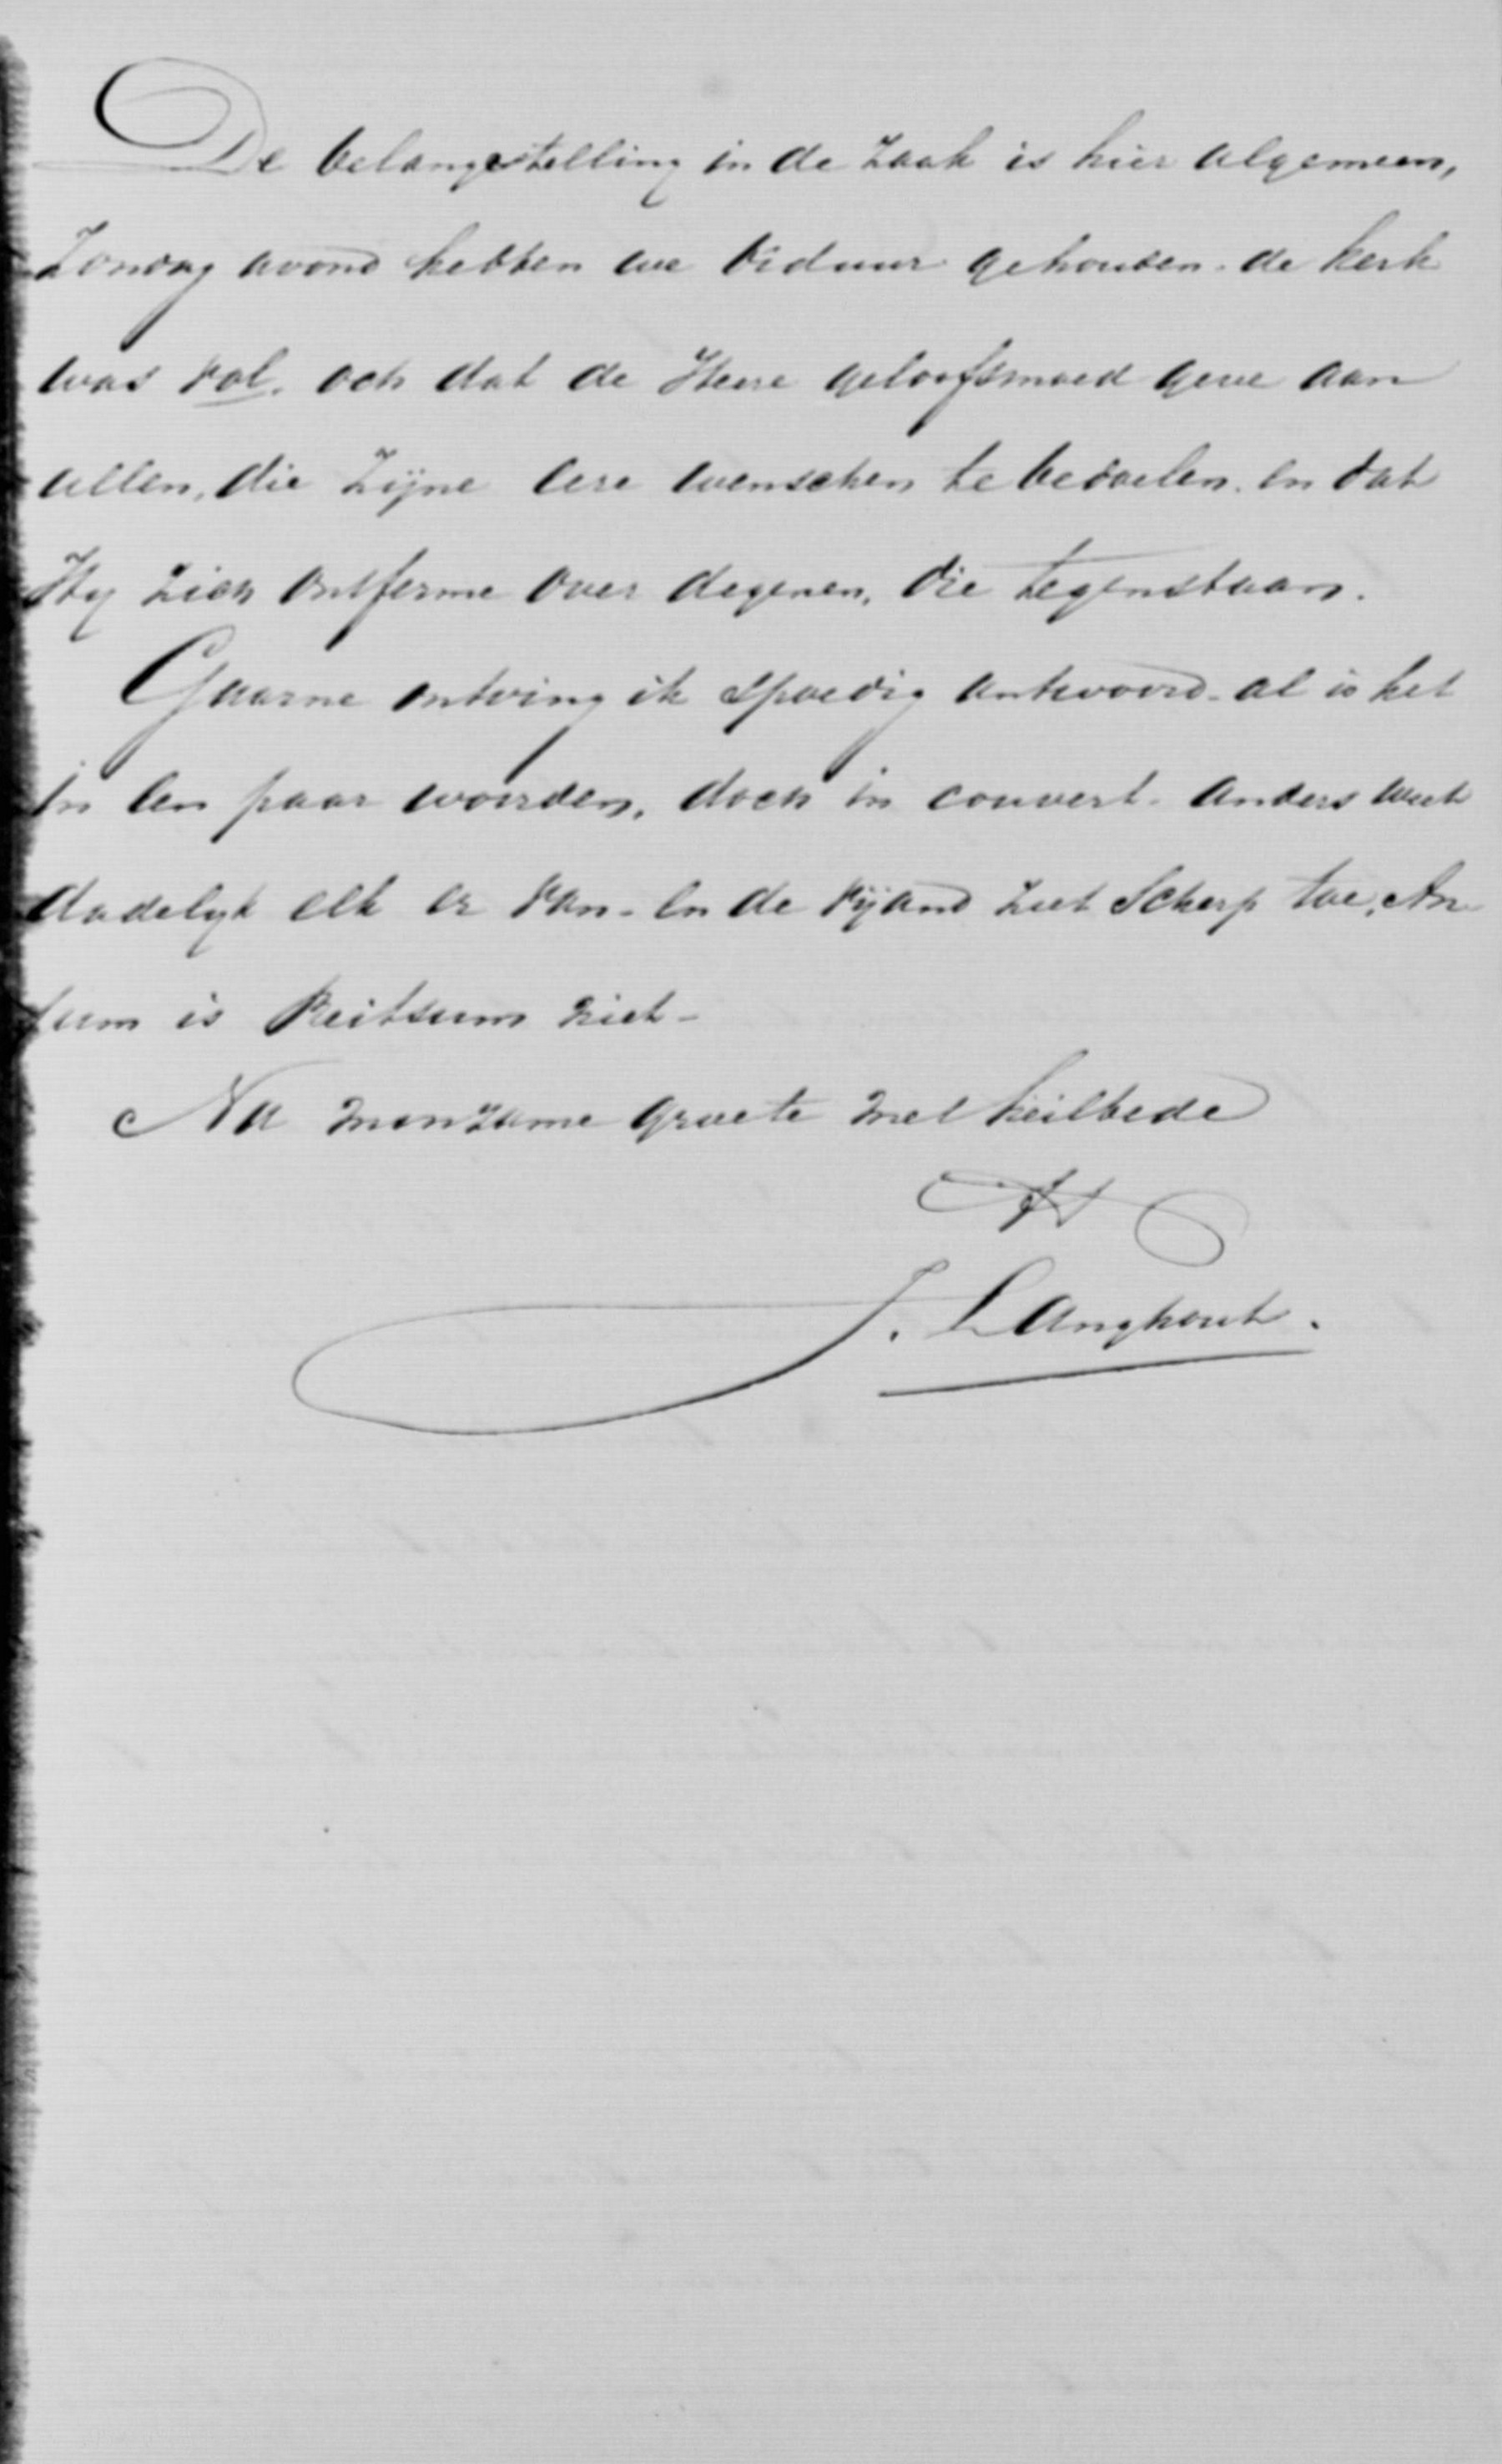 De belangstelling in de zaak is hier algemeen,
Zondag avond hebben we biduur gehouden. de kerk
was vol. och dat de Heere geloofsmoed geve aan
allen, die Zijne eere wenschen te bedoelen. en dat
Hy zich ontferme over degenen, die tegenstaan.
Gaarne ontving ik spoedig antwoord. al is het
in een paar woorden, doch in couvert. anders weet
dadelyk elk er van. en de vijand ziet scherp toe, An
jum is Reitsum niet -
Na minzame groete met heilbede
J. Langhout.